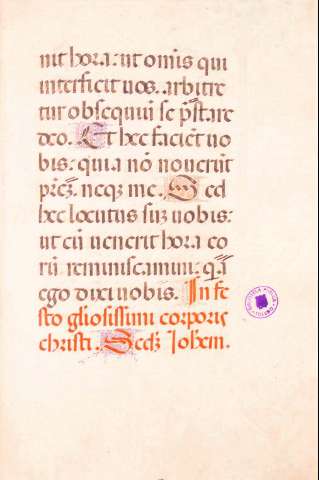 nit hora: ut omīs qui
interficit uos. arbitre
tur obsequiū se p̄stare
deo. Et hec faciēt uo
bis: quia nō nouerūt
prēz. neqz me. Sed
hec locutus suz uobis:
ut cū uenerit hora eo
rū reminiscamini: q̄a
ego dixi uobis. In fe
sto gliosissimi corporis
christi. Secdz Johem.